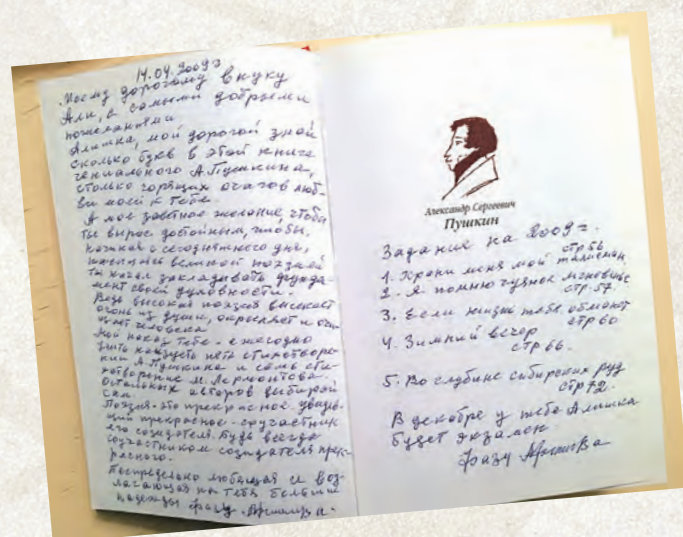 14.04.2009г
Моему дорогому внуку
Али, с самыми добрыми
пожеланиями
Алишка, мой дорогой знай
сколько букв в этой книге
гениального А. Пушкина,
столько горящих очагов люб-
ви моей к тебе.
А мое заветное желание чтобы
ты вырос достойным, чтобы,
начиная с сегодняшнего дня,
великой поэзией
ты начал закладывать фунда-
мент своей духовности.
Ведь высокая поэзия высекает
огонь из души, окрыляет и очи-
щает человека
Мой наказ тебе - ежегодно
учить наизусть пять стихотворе-
ний А. Пушкина и семь сти-
хотворение М. Лермонтова.
Остальных авторов выбирай
сам.
Поэзия - это прекрасное, увидев-
ший прекрасное - соучастник
его создателя. Будь всегда
соучастником создателя прек-
расного.
Беспредельно любящая и воз-
лагающая на тебя большие
надежды Фазу
Александр Сергеевич
Пушкин
Задание на 2009г.
1. Храни меня мой талисман
стр 56
2. Я помню чудное мгновенье
стр. 57.
3. Если жизнь тебя обманет
стр 60
4. Зимний вечер
стр 66.
5. Во глубине сибирских руд
стр 72.
В декабре у тебя Алишка
будет экзамен.
Фазу